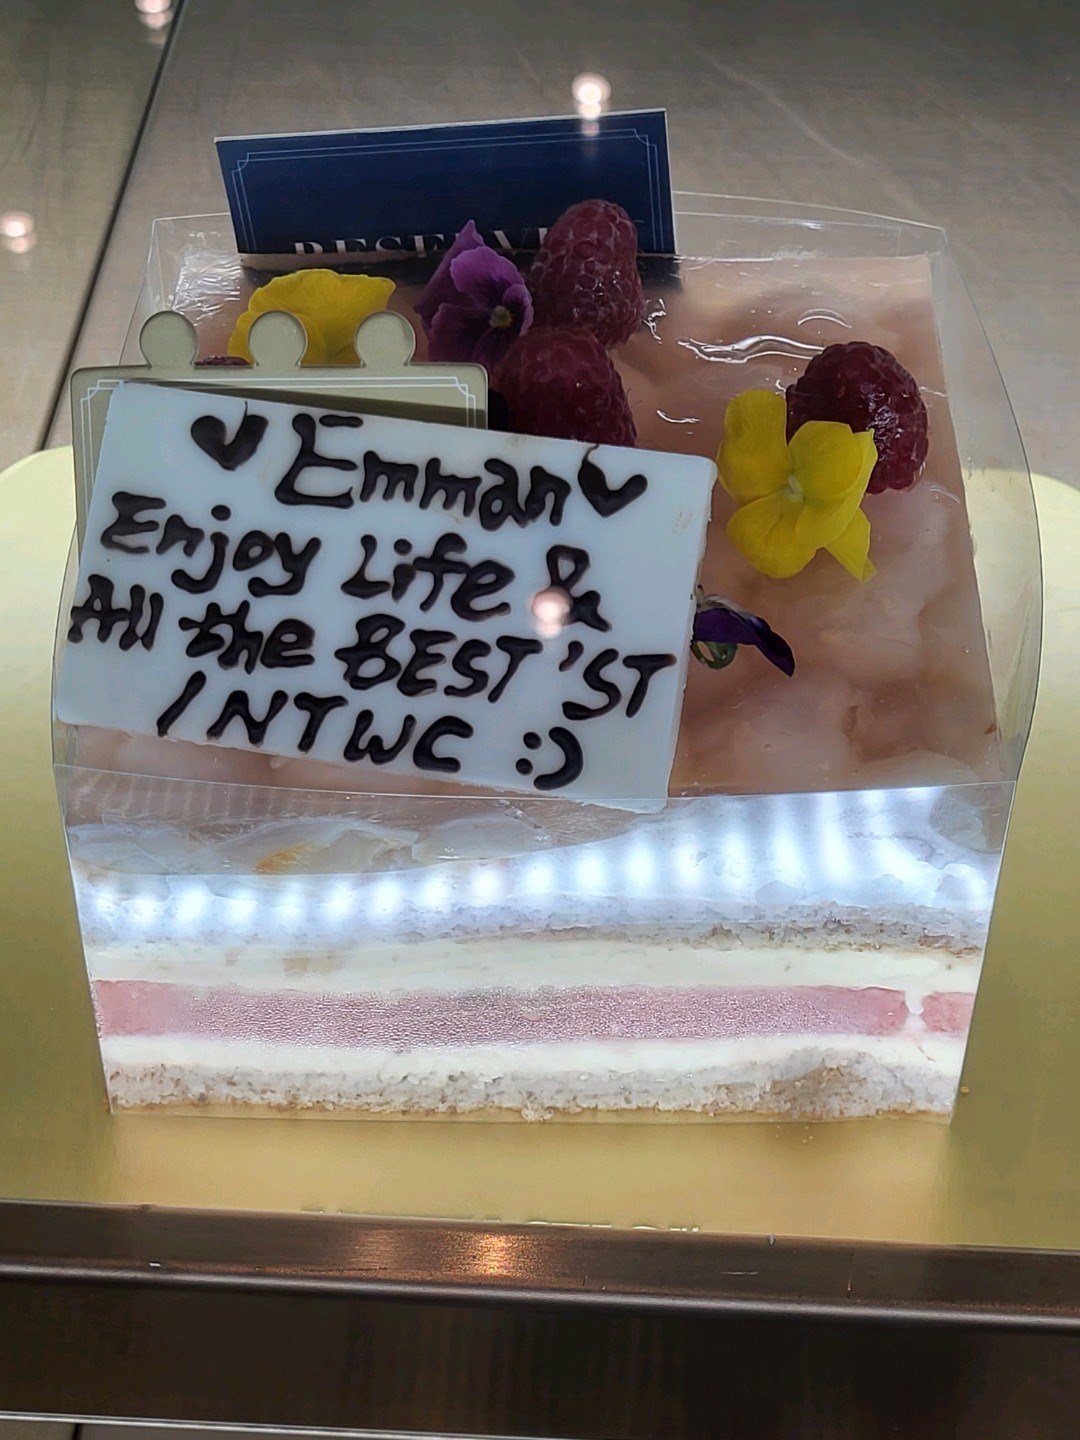 RESERVE
♥ Emman ♥
Enjoy Life &
All the BEST 'ST
/ NTWC :)